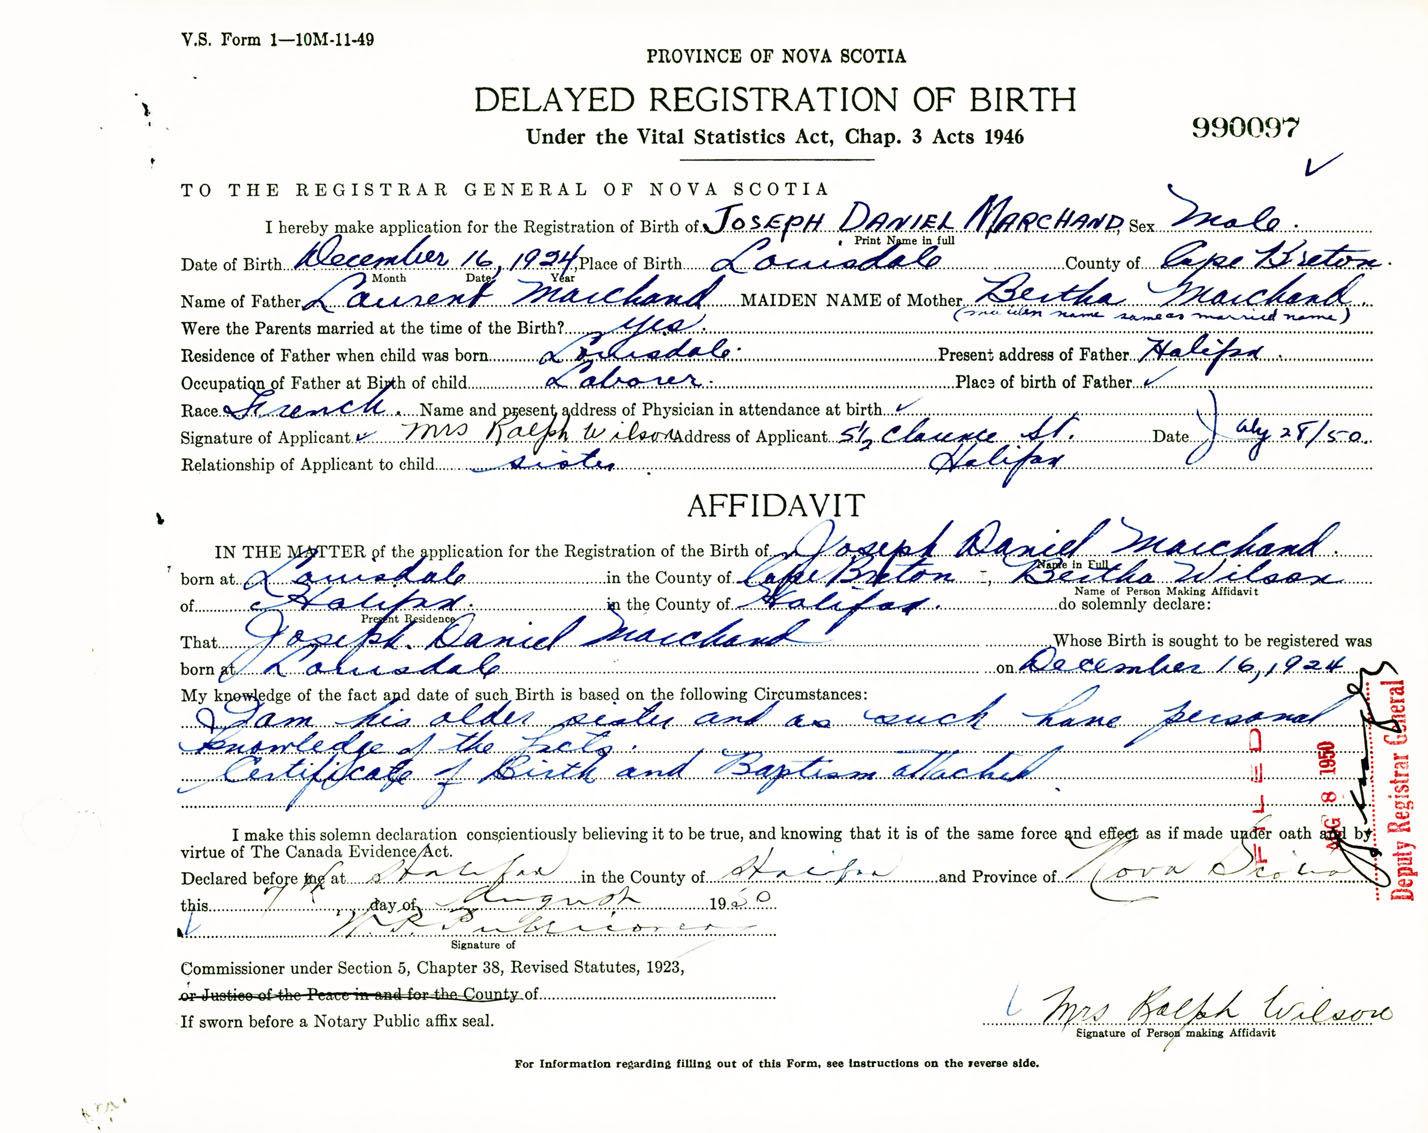 V.S. Form 1—10M-11-49
PROVINCE OF NOVA SCOTIA
DELAYED REGISTRATION OF BIRTH
Under the Vital Statistics Act, Chap. 3 Acts 1946
990097
TO THE REGISTRAR GENERAL OF NOVA SCOTIA
I hereby make application for the Registration of Birth of JOSEPH DANIEL MARCHAND Sex Male.
Print Name in full
Date of Birth December 16, 1924, Place of Birth Louisdale County of Cape Breton.
Month Date Year
Name of Father Laurent Marchand MAIDEN NAME of Mother Bertha Marchand
(maiden name same as married name)
Were the Parents married at the time of the Birth? yes.
Residence of Father when child was born Louisdale. Present address of Father Halifax.
Occupation of Father at Birth of child Laborer. Place of birth of Father
Race French. Name and present address of Physician in attendance at birth
Signature of Applicant Mrs Ralph Wilson Address of Applicant 5½ Clarence St. Date July 28/50.
Relationship of Applicant to child sister Halifax
AFFIDAVIT
IN THE MATTER of the application for the Registration of the Birth of Joseph Daniel Marchand.
Name in Full
born at Louisdale in the County of Cape Breton -, Bertha Wilson
Name of Person Making Affidavit
of Halifax. in the County of Halifax. do solemnly declare:
Present Residence
That Joseph Daniel Marchand Whose Birth is sought to be registered was
born at Louisdale on December 16, 1924
My knowledge of the fact and date of such Birth is based on the following Circumstances:
I am his older sister and as such have personal
knowledge of the facts.
Certificate of Birth and Baptism attached.
FILED
AUG 8 1950
Deputy Registrar General
I make this solemn declaration conscientiously believing it to be true, and knowing that it is of the same force and effect as if made under oath and by
virtue of The Canada Evidence Act.
Declared before me at Halifax in the County of Halifax and Province of Nova Scotia
this 7th day of August 1950
Signature of
Commissioner under Section 5, Chapter 38, Revised Statutes, 1923,
or Justice of the Peace in and for the County of
If sworn before a Notary Public affix seal.
Mrs Ralph Wilson
Signature of Person making Affidavit
For Information regarding filling out of this Form, see instructions on the reverse side.